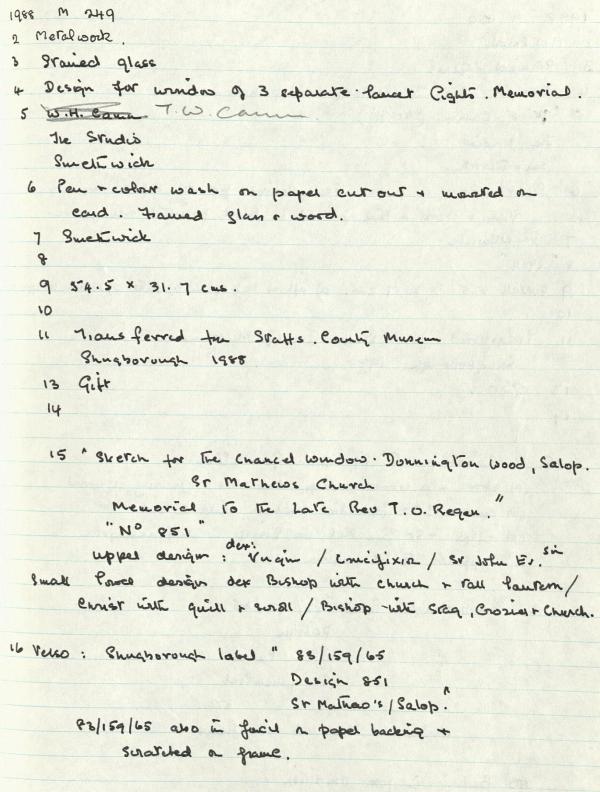 1988 M 249
2 Metalwork.
3 Stained glass
4 Design for window of 3 separate lancet lights. Memorial.
5 W.H. Camm T.W. Camm
The Studio
Smethwick
6 Pen + colour wash on paper cut out + mounted on
card. Framed glass + wood.
7 Smethwick
8
9 54.5 x 31.7 cms.
10
11 Transferred from Staffs. County Museum
Shugborough 1988
13 Gift
14
15 "Sketch for the Chancel window. Donnington Wood, Salop.
St Mathews Church
Memorial to the Late Rev T.O. Regan."
"No 851"
Upper design: dex: Virgin / Crucifixion / St John Ev. sin
Small lower design dex Bishop with church + tall lantern /
Christ with quill + scroll / Bishop with Stag, Crozier + Church.
16 Verso: Shugborough label "83/159/65
Design 851
St Mathew's / Salop."
83/159/65 also in pencil on paper backing +
scratched on frame.